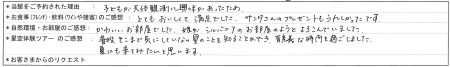 *当館をご予約された理由 : 子どもが天体観測に興味があったため。
*お食事(フレンチ)・飲料(ワインや焼酎)のご感想: とてもおいしくて満足でした。サンタさんのプレゼントもうれしかったです。
*自然環境・お部屋のご感想: かわいいお部屋でした。娘がシルバニアのお部屋のようとよろこんでいました。
*星空体験ツアーのご感想 : 普段そこまで気にしていない星のことを知ることができ、有意義な時間を過ごせました。
夏にも来てみたいと思います。
*お客さまからのリクエスト